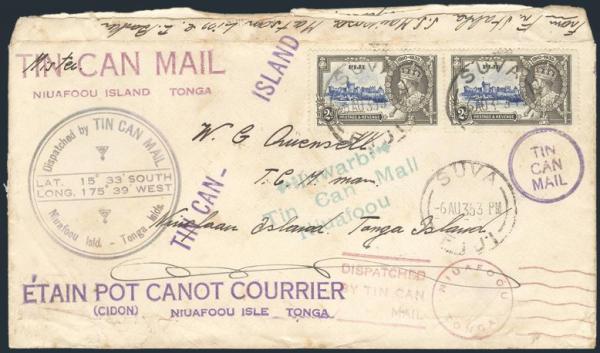 From
TIN CAN MAIL
NIUAFOOU ISLAND TONGA
TIN CAN-
ISLAND
FIJI
2D
POSTAGE & REVENUE
SUVA
FIJI
FIJI
2D
POSTAGE & REVENUE
SUVA
Dispatched by TIN CAN MAIL
LAT. 15° 33' SOUTH
LONG. 175° 39' WEST
Niuafoou Isld. - Tonga Islds.
W. G. Quensell
T. C. M. man.
Island. Tonga Island.
Tin Can Mail
Niuafoou
TIN
CAN
MAIL
SUVA
-6 AU 35 3 PM
FIJI
ÉTAIN POT CANOT COURRIER
(CIDON) NIUAFOOU ISLE TONGA
DISPATCHED
BY TIN CAN
MAIL
NIUAFOOU
TONGA